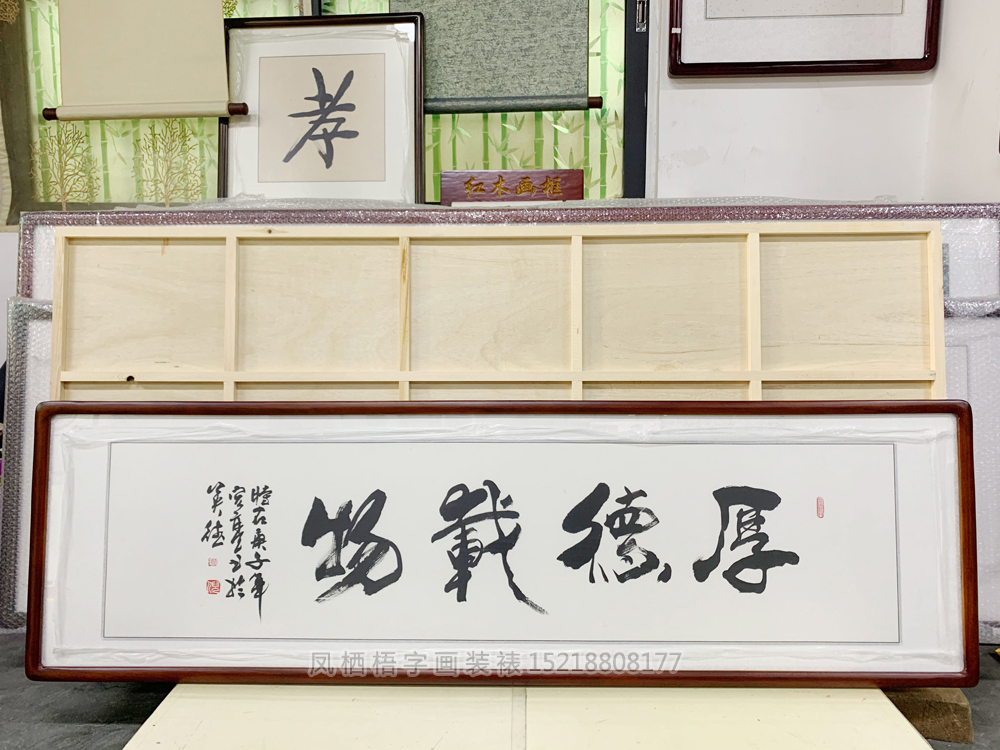 孝
红木画框
厚德载物
時在庚子年
凤栖梧字画装裱 15218808177